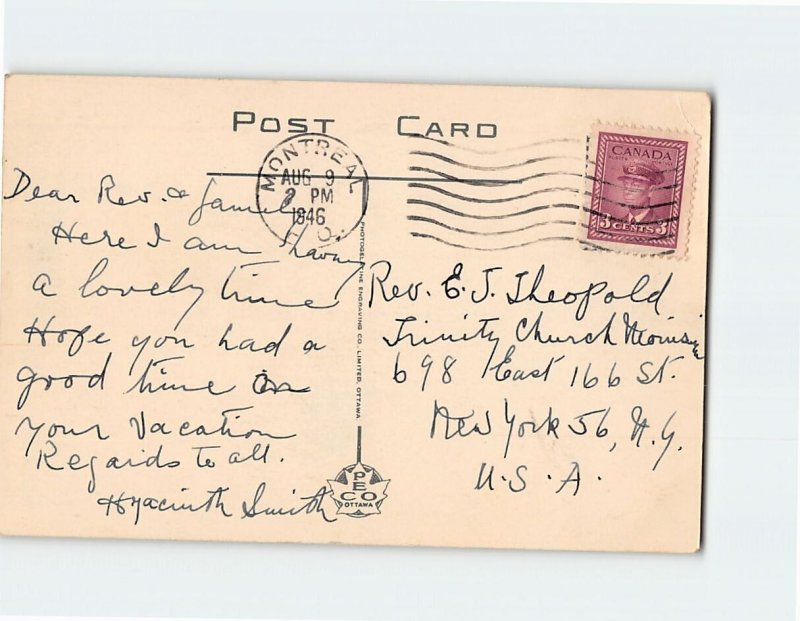 POST CARD
MONTREAL
AUG 9
2 PM
1946
P.Q.
CANADA
3 CENTS 3
Dear Rev. & Family
Here I am having
a lovely time
Hope you had a
good time on
your vacation
Regards to all.
Hyacinth Smith
PHOTOGELATINE ENGRAVING CO. LIMITED, OTTAWA
PECO
OTTAWA
Rev. E. J. Theopold
Trinity Church Morrisania
698 East 166 St.
New York 56, N.Y.
U.S.A.